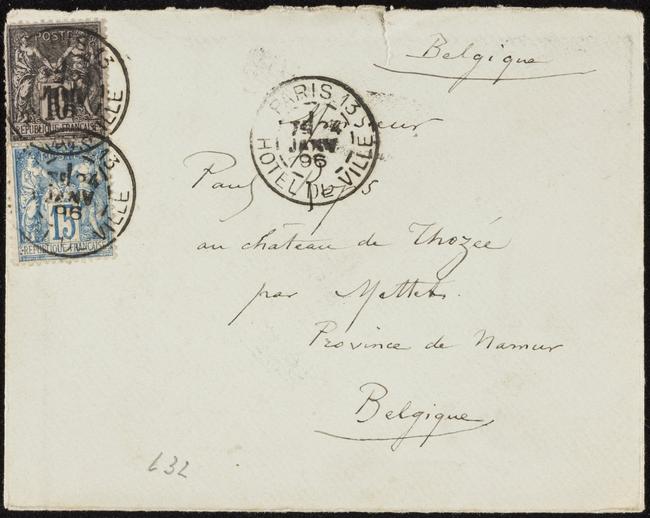 Belgique
POSTES
10
REPUBLIQUE FRANÇAISE
15
REPUBLIQUE FRANÇAISE
PARIS 13
JANV
96
HOTEL DE VILLE
Monsieur
Paul
au château de Thozée
par Mettet.
Province de Namur
Belgique
632